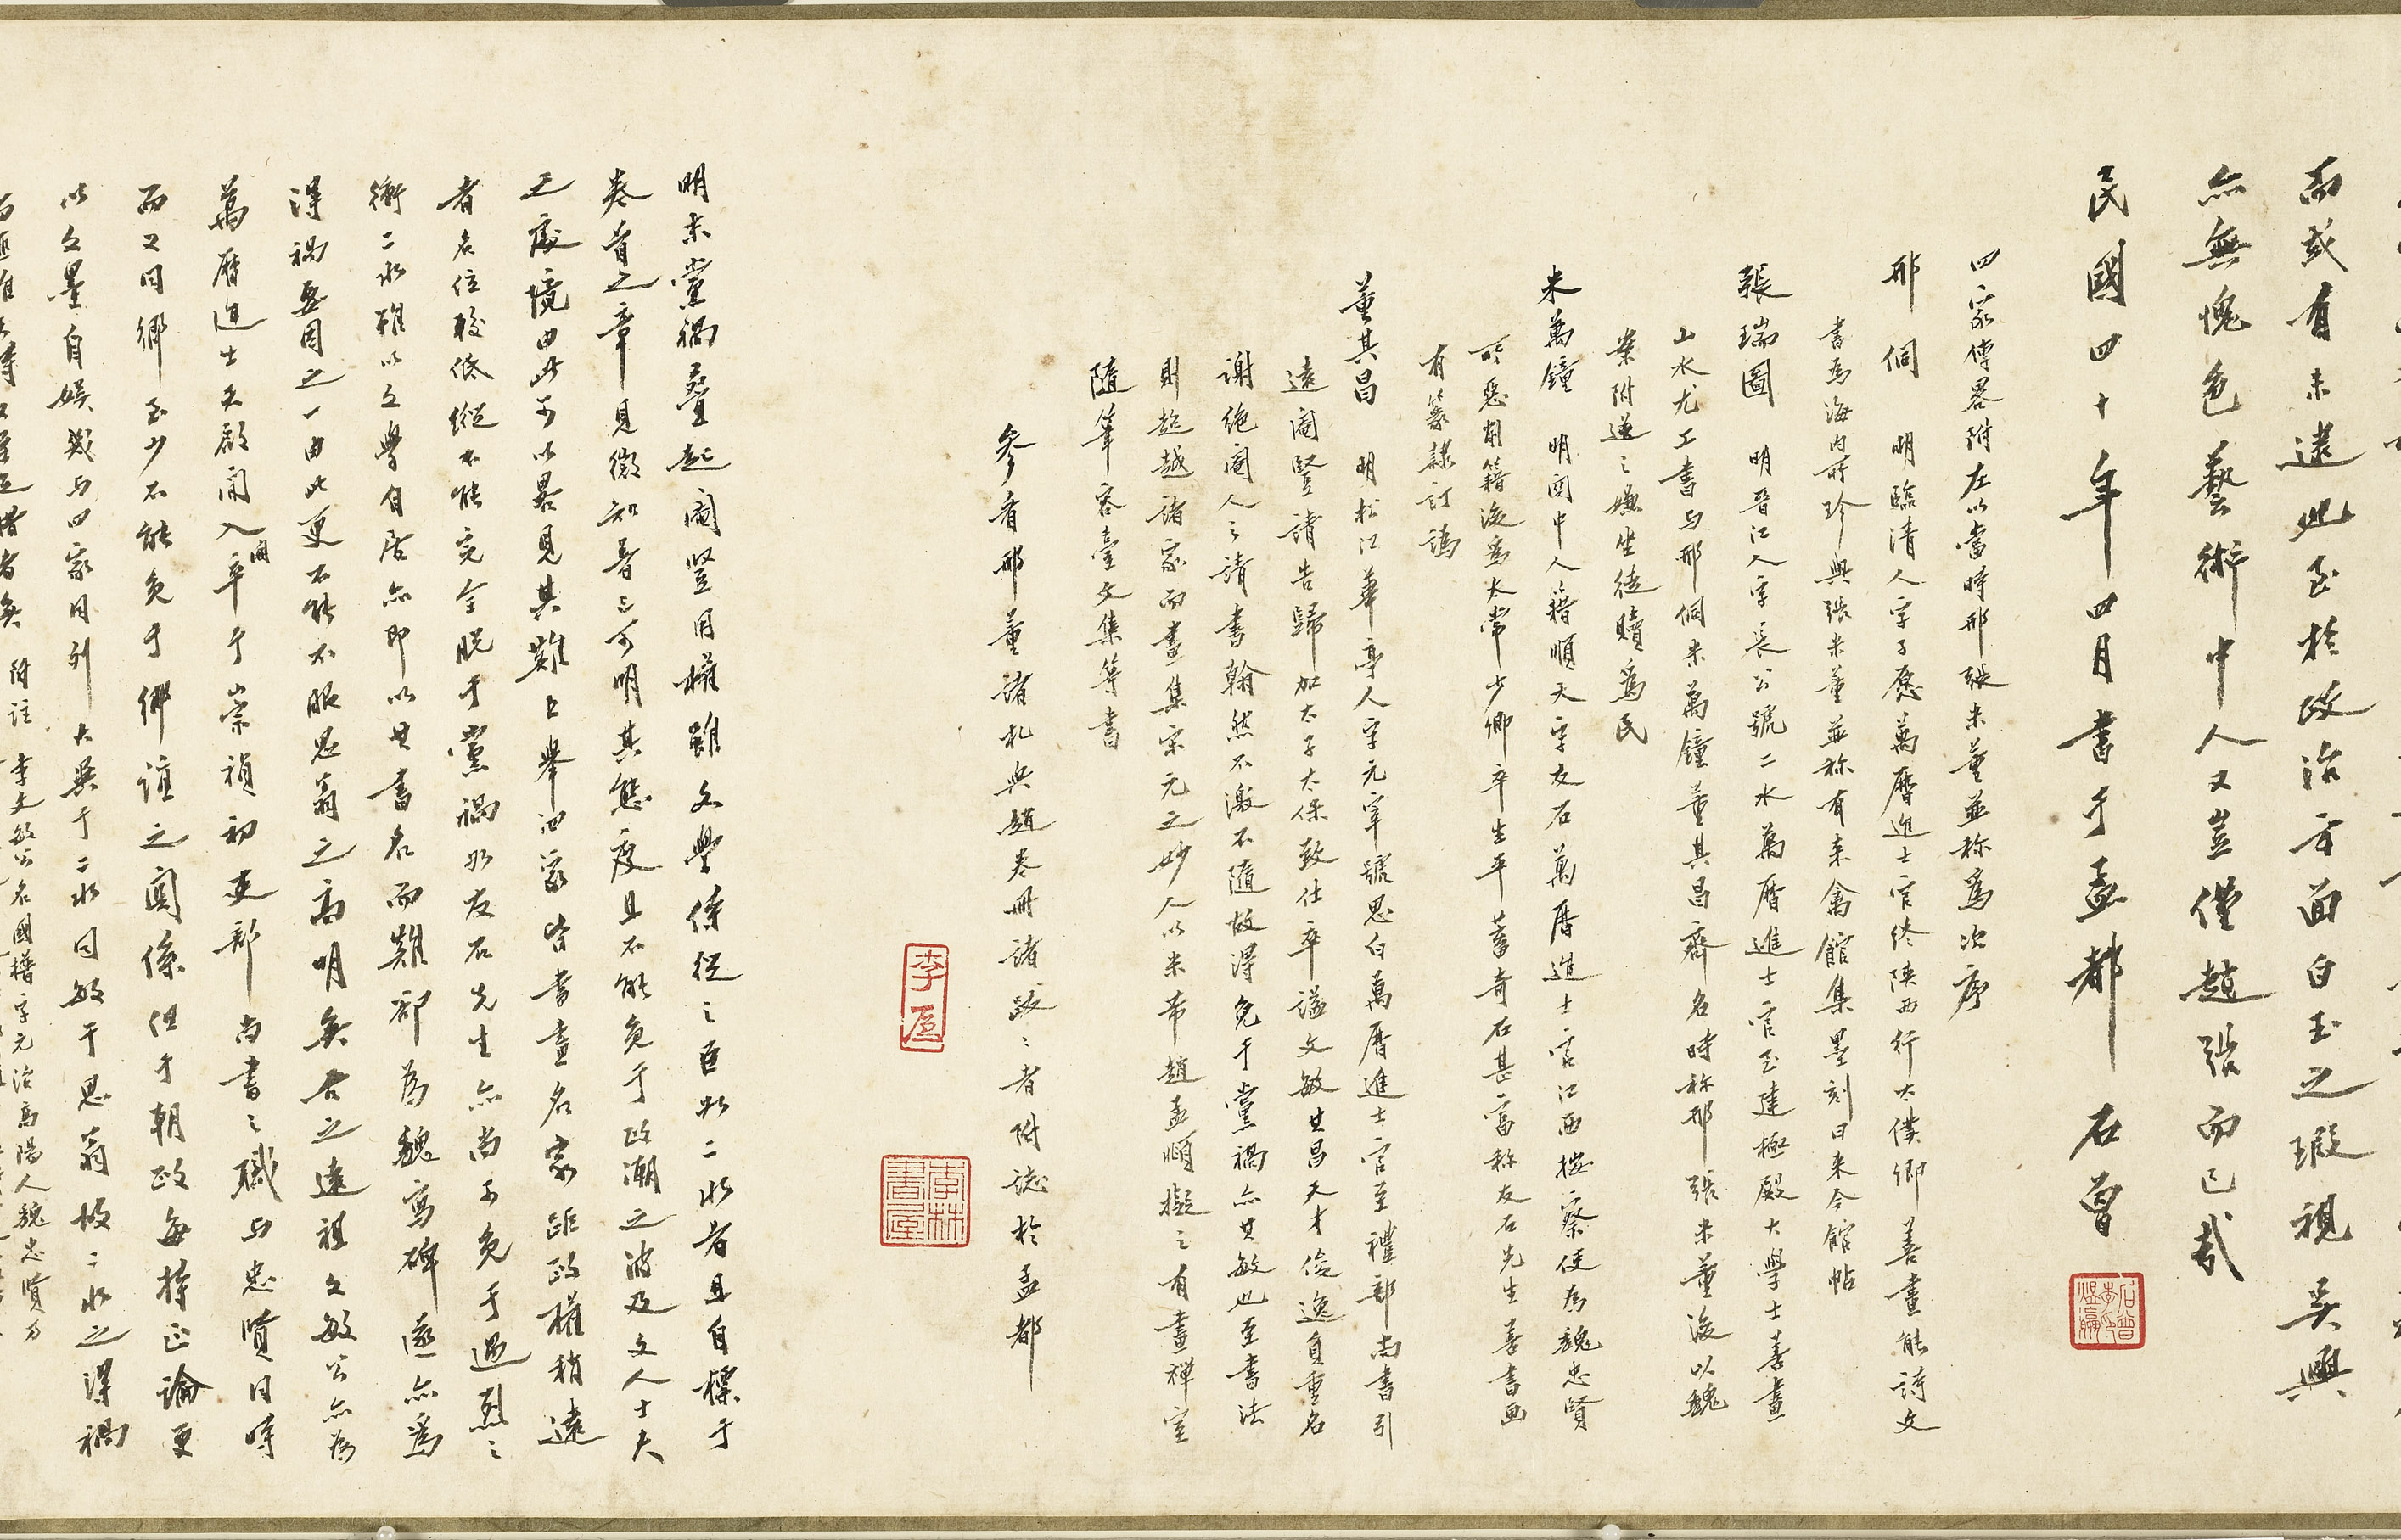 而或有未逮此至於政治方面白玉之瑕視吳興
亦無愧色藝術中人又豈僅趙張而已哉
民國四十年四月書于孟都 石曾
四家傳畧附左以當時邢張米董並称爲次序
邢侗 明臨清人字子愿萬曆進士官終陝西行太僕卿善畫能詩文
書爲海内所珍與張米董並称有来禽館集墨刻曰来今館帖
張瑞圖 明晋江人字長公號二水萬曆進士官至建極殿大學士善畫
山水尤工書与邢侗米萬鐘董其昌齊名時称邢張米董後以魏
案附逆之嫌坐徒贖爲民
米萬鐘 明関中人籍順天字友石萬曆進士官江西按察使為魏忠賢
所惡削籍後爲太常少卿卒生平蓄奇石甚富称友石先生善書画
有篆隷訂譌
董其昌 明松江華亭人字元宰號思白萬曆進士官至禮部尚書引
遠閹豎請告歸加太子太保致仕卒謚文敏其昌天才俊逸負重名
謝絶閹人之請書翰然不激不隨故得免于黨禍亦其敏也至書法
則超越諸家而畫集宋元之妙人以米芾趙孟頫擬之有畫禅室
隨筆容臺文集等書
參看邢董諸札與趙卷冊諸跋跋者附誌於孟都
李屋
李林書屋
明末黨禍疊起閹豎用權雖文學侍從之臣如二水者且自標于
卷首之章見微知著亦可明其態度且不能免于政潮之波及文人士夫
之處境由此可以畧見其難上舉四家皆書畫名家距政權稍遠
者名位較低縱不能完全脱于黨禍如友石先生亦尚可免于過烈之
衝二水雖以文學自居亦即以其書名而難卻為魏寫碑遂亦爲
得禍要因之一由此更不能不服思翁之高明矣余之遠祖文敏公亦為
萬曆進士天啟間入閣卒于崇禎初吏部尚書之職与忠賢同時
而又同鄉至少不能免于鄉誼之關係但于朝政每持正論更
以文墨自娱幾与四家同列大異于二水同敏于思翁故二水之得禍
附註 李文敏公名國𣚴字元治高陽人魏忠賢乃